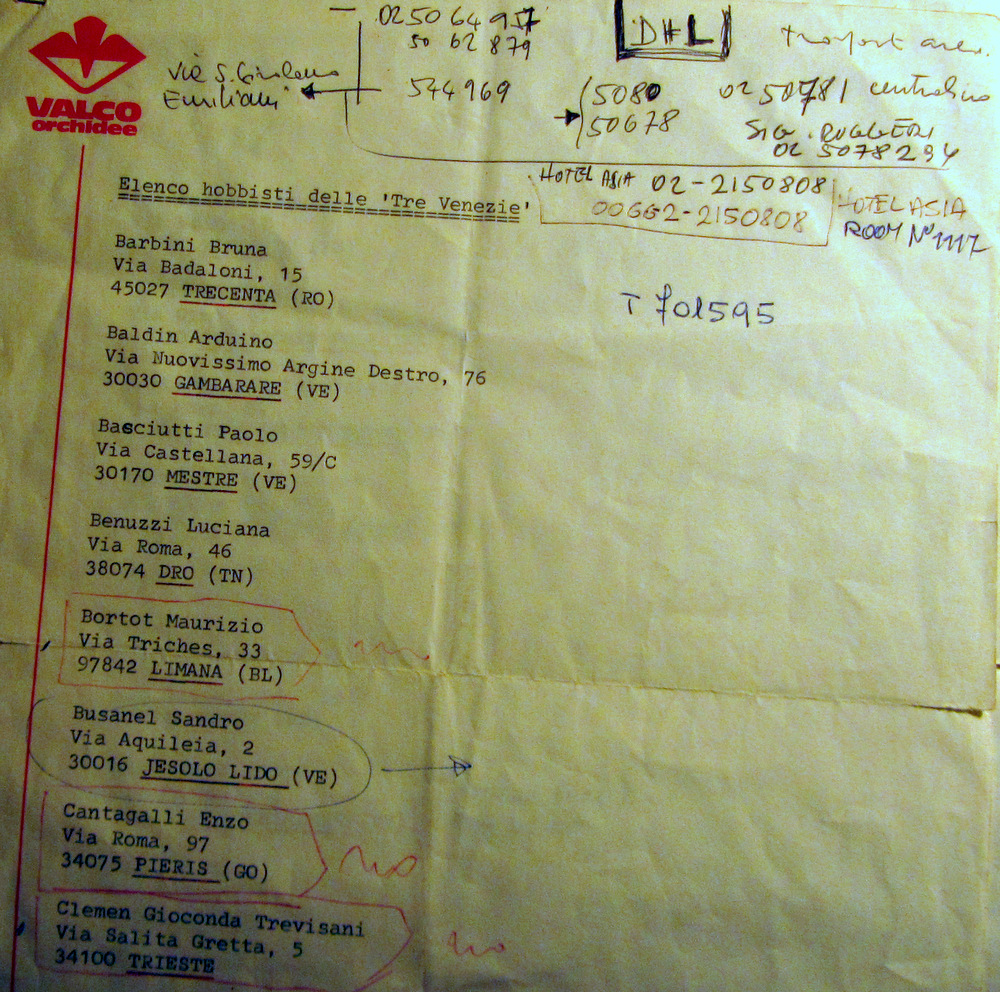 02 50 64 957
50 62 879
DHL
Via S. Girolamo
Emiliani
544969
5080
50678
02 50781 centralino
SIG. RUGGERI
02 5078294
VALCO
orchidee
HOTEL ASIA 02-2150808
00662-2150808
HOTEL ASIA
ROOM N° 1117
Elenco hobbisti delle 'Tre Venezie'
T 701595
Barbini Bruna
Via Badaloni, 15
45027 TRECENTA (RO)
Baldin Arduino
Via Nuovissimo Argine Destro, 76
30030 GAMBARARE (VE)
Basciutti Paolo
Via Castellana, 59/C
30170 MESTRE (VE)
Benuzzi Luciana
Via Roma, 46
38074 DRO (TN)
Bortot Maurizio
Via Triches, 33
97842 LIMANA (BL)
no
Busanel Sandro
Via Aquileia, 2
30016 JESOLO LIDO (VE)
Cantagalli Enzo
Via Roma, 97
34075 PIERIS (GO)
no
Clemen Gioconda Trevisani
Via Salita Gretta, 5
34100 TRIESTE
no